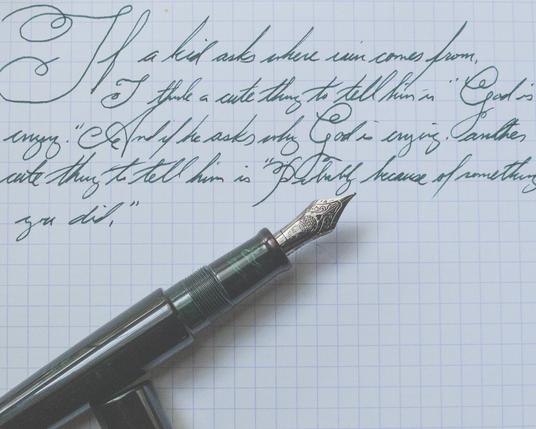 If a kid asks where rain comes from,
I think a cute thing to tell him is "God is
crying." And if he asks why God is crying, another
cute thing to tell him is "Probably because of something
you did."